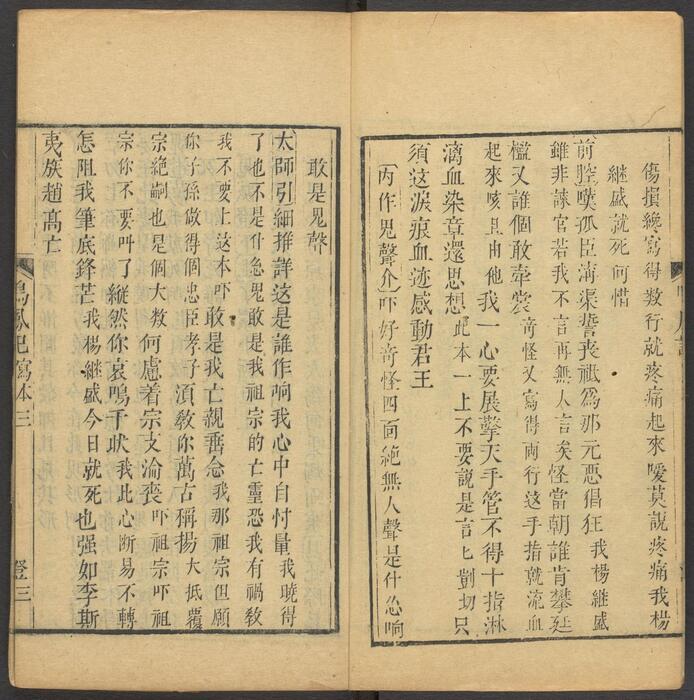 傷損纔寫得数行就疼痛起來噯莫說疼痛我楊
継盛就死何惜
前腔嘆孤臣溝渠誓喪祗爲那元悪倡狂我楊継盛
雖非諫官若我不言再無人言矣怪當朝誰肯攀廷
檻又誰個敢牽裳竒怪又寫得両行这手指就流血
起來咳且由他我一心要展擎天手管不得十指淋
漓血染章還思想此本一上不要說是言匕剴切只
須这淚痕血迹感動君王
内作鬼聲介吓好竒怪四面絶無人聲是什庅响
敢是鬼聲
太師引細推詳這是誰作响我心中自忖量我曉得
了也不是什庅鬼敢是我祖宗的亡靈恐我有禍教
我不要上这本吓敢是我亡親垂念我那祖宗但願
你子孫做得個忠臣孝子須教你萬古稱揚大抵覆
宗絶嗣也是個大数何慮着宗支淪喪吓祖宗吓祖
宗你不要呌了縱然你哀鳴千狀我此心断易不轉
怎阻我筆底鋒芒我楊継盛今日就死也强如李斯
夷族趙高亡
鳴鳳記寫本三
三